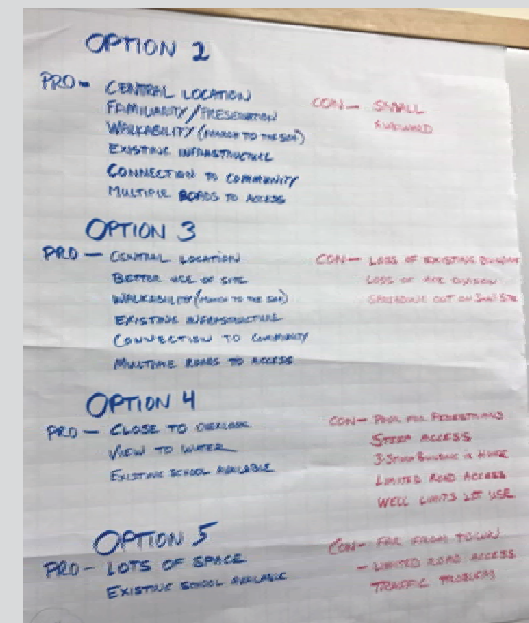 OPTION 2
PRO - CENTRAL LOCATION
FAMILIARITY/PRESERVATION
WALKABILITY (MARCH TO THE SEA)
EXISTING INFRASTRUCTURE
CONNECTION TO COMMUNITY
MULTIPLE ROADS TO ACCESS
CON - SMALL
AWKWARD
OPTION 3
PRO - CENTRAL LOCATION
BETTER USE OF SITE
WALKABILITY (MARCH TO THE SEA)
EXISTING INFRASTRUCTURE
CONNECTION TO COMMUNITY
MULTIPLE ROADS TO ACCESS
CON - LOSS OF EXISTING BUILDING
LOSS OF
OUT ON SMALL SITE
OPTION 4
PRO - CLOSE TO OVERLOOK
VIEW TO WATER
EXISTING SCHOOL AVAILABLE
CON - POOR FOR PEDESTRIANS
STEEP ACCESS
3-STORY BUILDING IS HUGE
LIMITED ROAD ACCESS
WELL LIMITS SITE USE
OPTION 5
PRO - LOTS OF SPACE
EXISTING SCHOOL AVAILABLE
CON - FAR FROM TOWN
- LIMITED ROAD ACCESS
TRAFFIC PROBLEMS